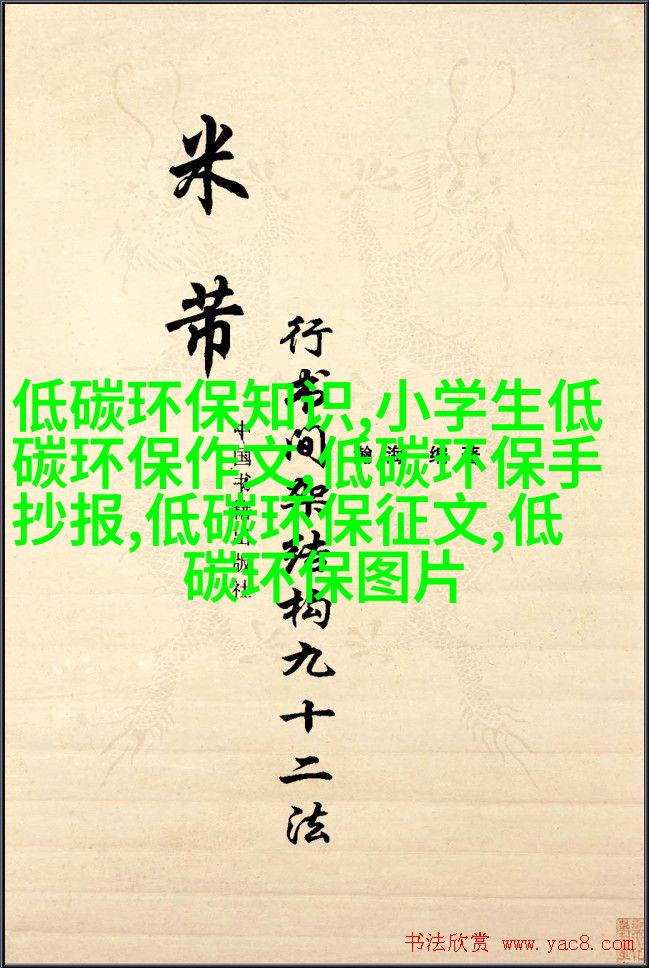 米芾
行书间架结构九十二法
中国书籍出版社
低碳环保知识,小学生低
碳环保作文,低碳环保手
抄报,低碳环保征文,低
碳环保图片
书法欣赏 www.yac8.com